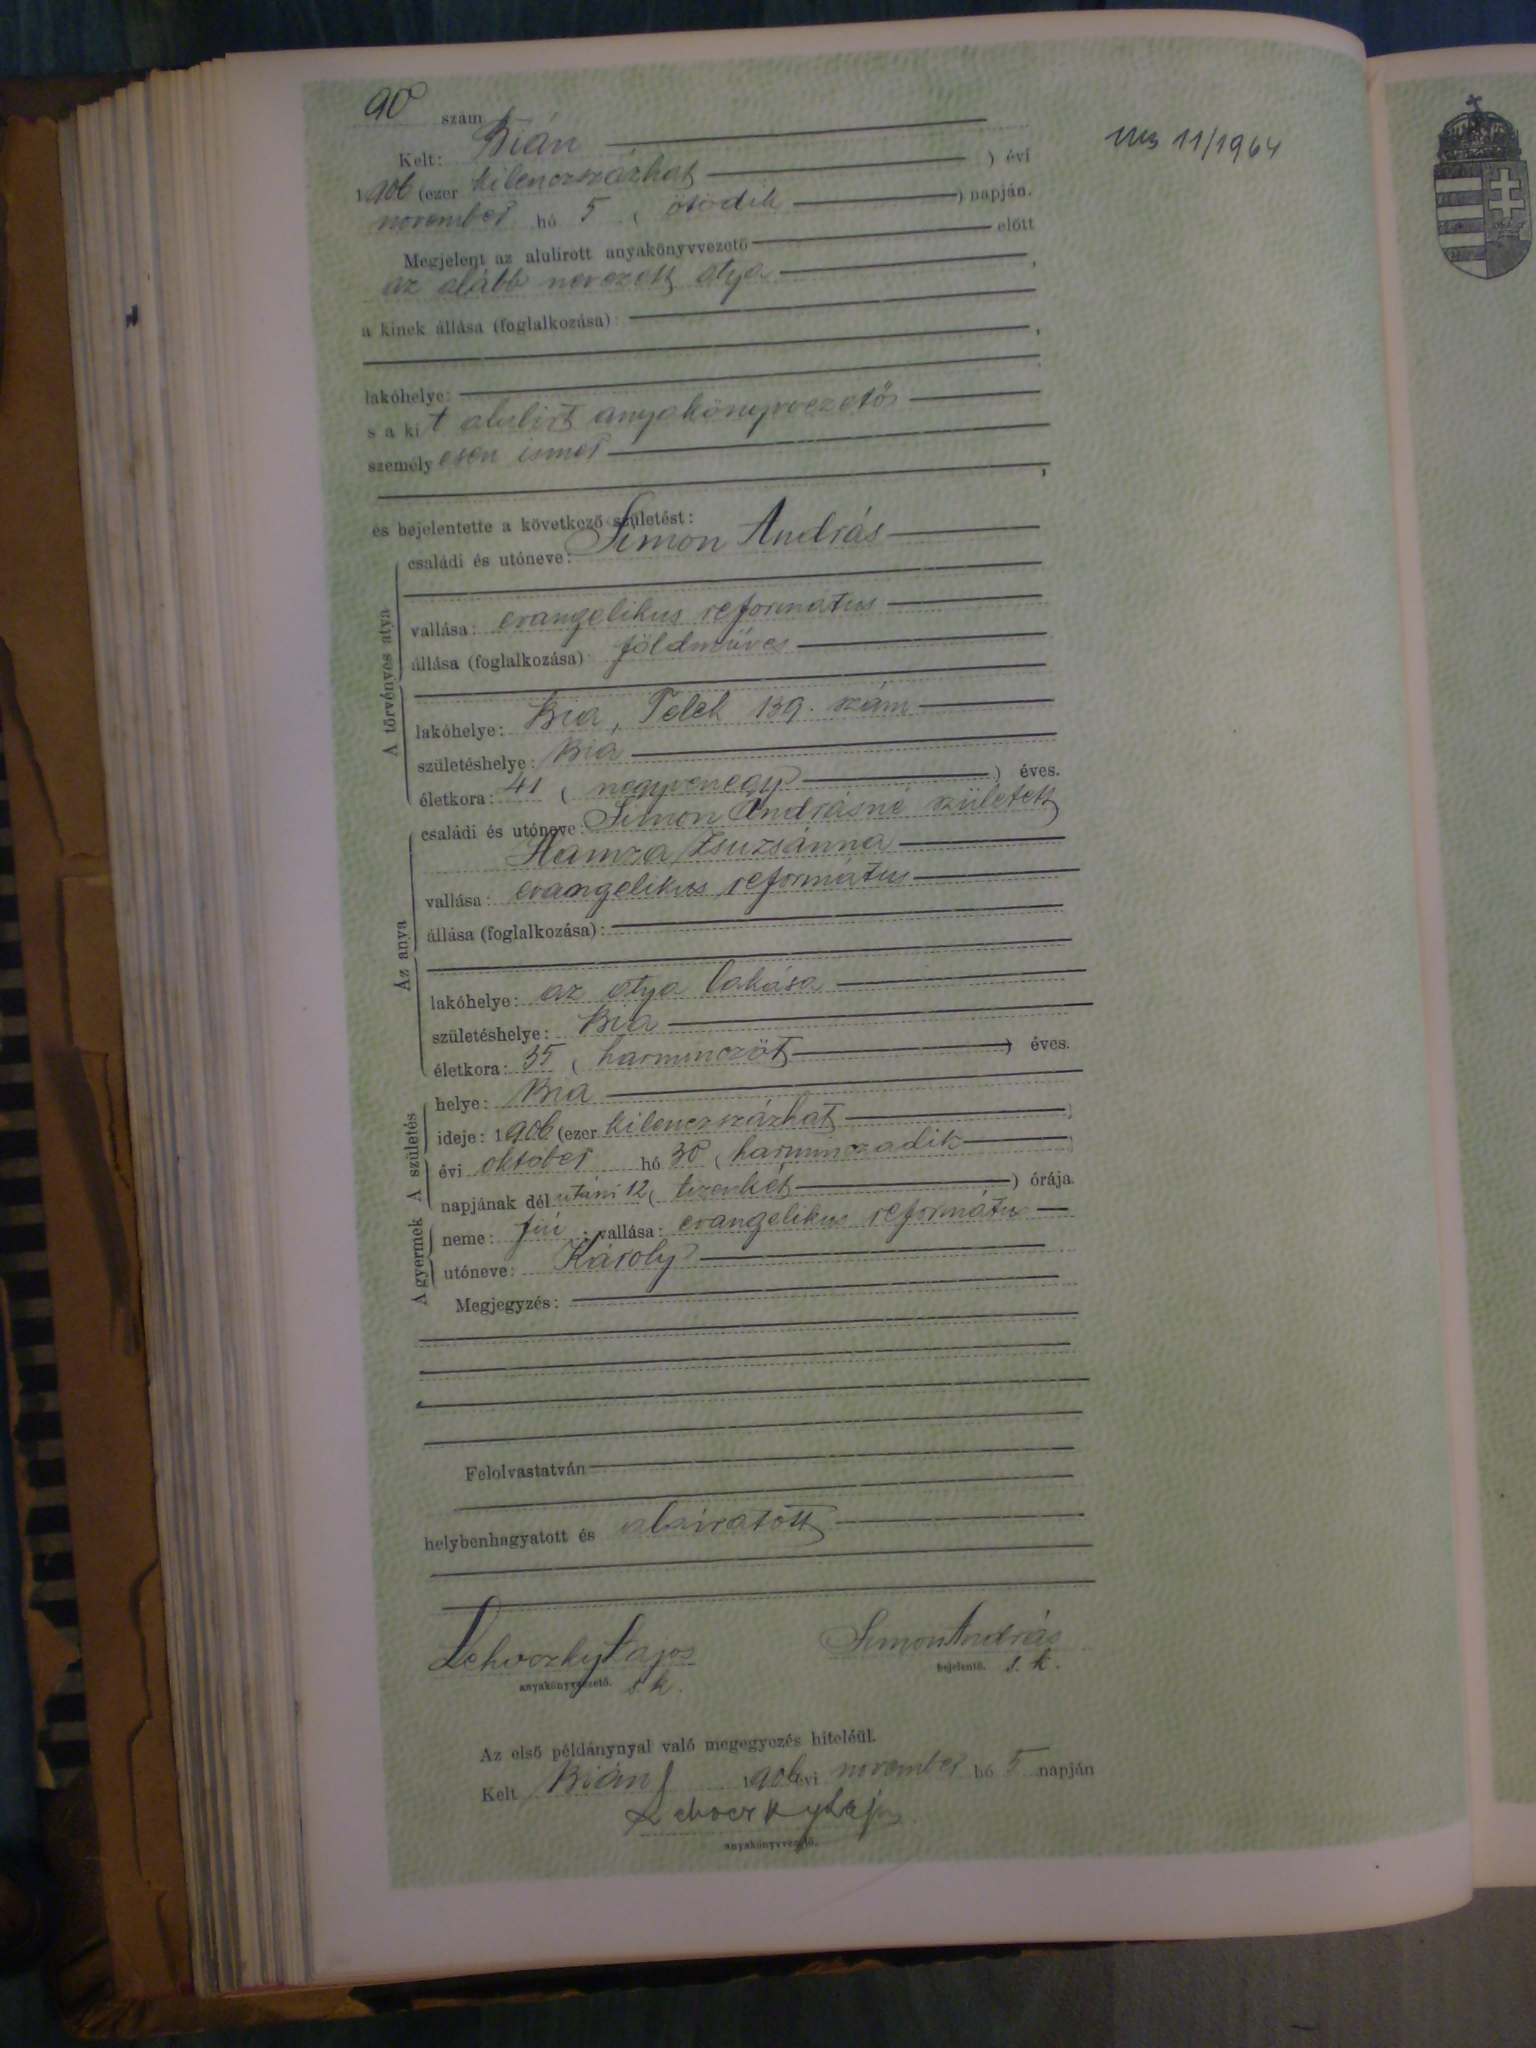 90 szám
Kelt: Bián
1906 (ezer kilenczszázhat ) évi
november hó 5 ( ötödik ) napján.
Megjelent az alulirott anyakönyvvezető előtt
az alább nevezett atya ,
a kinek állása (foglalkozása):
,
lakóhelye:
s a kit alulirt anyakönyvvezető
személyesen ismer
,
és bejelentette a következő születést:
A törvényes atya
családi és utóneve: Simon András
vallása: evangelikus reformatus
állása (foglalkozása): földmüves
lakóhelye: Bia, Telek 139. szám
születéshelye: Bia
életkora: 41 ( negyvenegy ) éves.
Az anya
családi és utóneve: Simon Andrásné született
Hamza Zsuzsánna
vallása: evangelikus református
állása (foglalkozása):
lakóhelye: az atya lakása
születéshelye: Bia
életkora: 35 ( harminczöt ) éves.
A születés
helye: Bia
ideje: 1906 (ezer kilenczszázhat )
évi október hó 30 ( harminczadik )
napjának dél utáni 12 ( tizenkét ) órája.
A gyermek
neme: fiú ; vallása: evangelikus református
utóneve: Károly
Megjegyzés:
Felolvastatván
helybenhagyatott és aláiratott
Lehoczky Lajos
anyakönyvvezető. s. k.
Simon András
bejelentő. s. k.
Az első példánynyal való megegyezés hiteléül.
Kelt Bián 1906 évi november hó 5 napján
Lehoczky Lajos
anyakönyvvezető.
11/1964